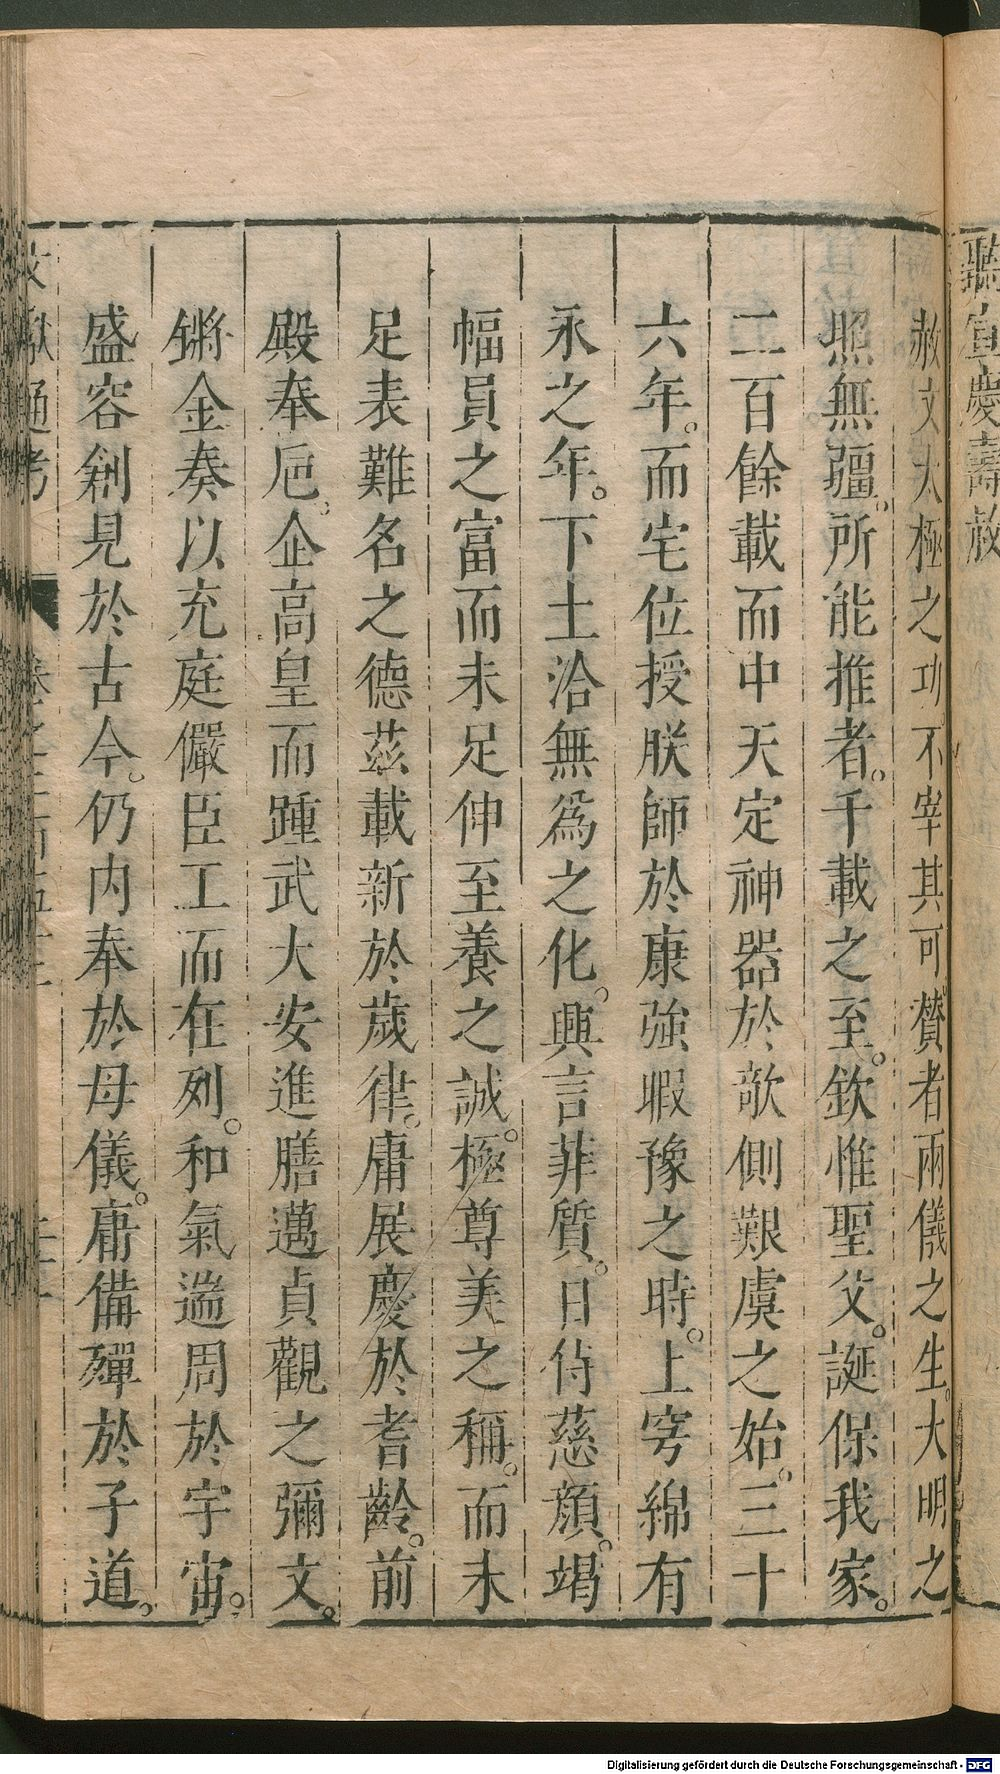 聽宣慶壽赦
赦文太極之功不宰其可賛者兩儀之生。大明之
照無疆。所能推者。千載之至。欽惟聖父。誕保我家。
二百餘載而中天定神器於欹側艱虞之始。三十
六年。而宅位授朕師於康強暇豫之時。上穹綿有
永之年。下土洽無爲之化。興言菲質。日侍慈顔。竭
幅員之富而未足伸至養之誠。極尊美之稱。而未
足表難名之德茲載新於歲律。庸展慶於耆齡。前
殿奉巵。企高皇而踵武大安進膳邁貞觀之彌文。
鏘金奏以充庭儼臣工而在列。和氣遄周於宇宙。
盛容創見於古今。仍内奉於母儀。庸備殫於子道。
文獻通考
Digitalisierung gefördert durch die Deutsche Forschungsgemeinschaft - DFG